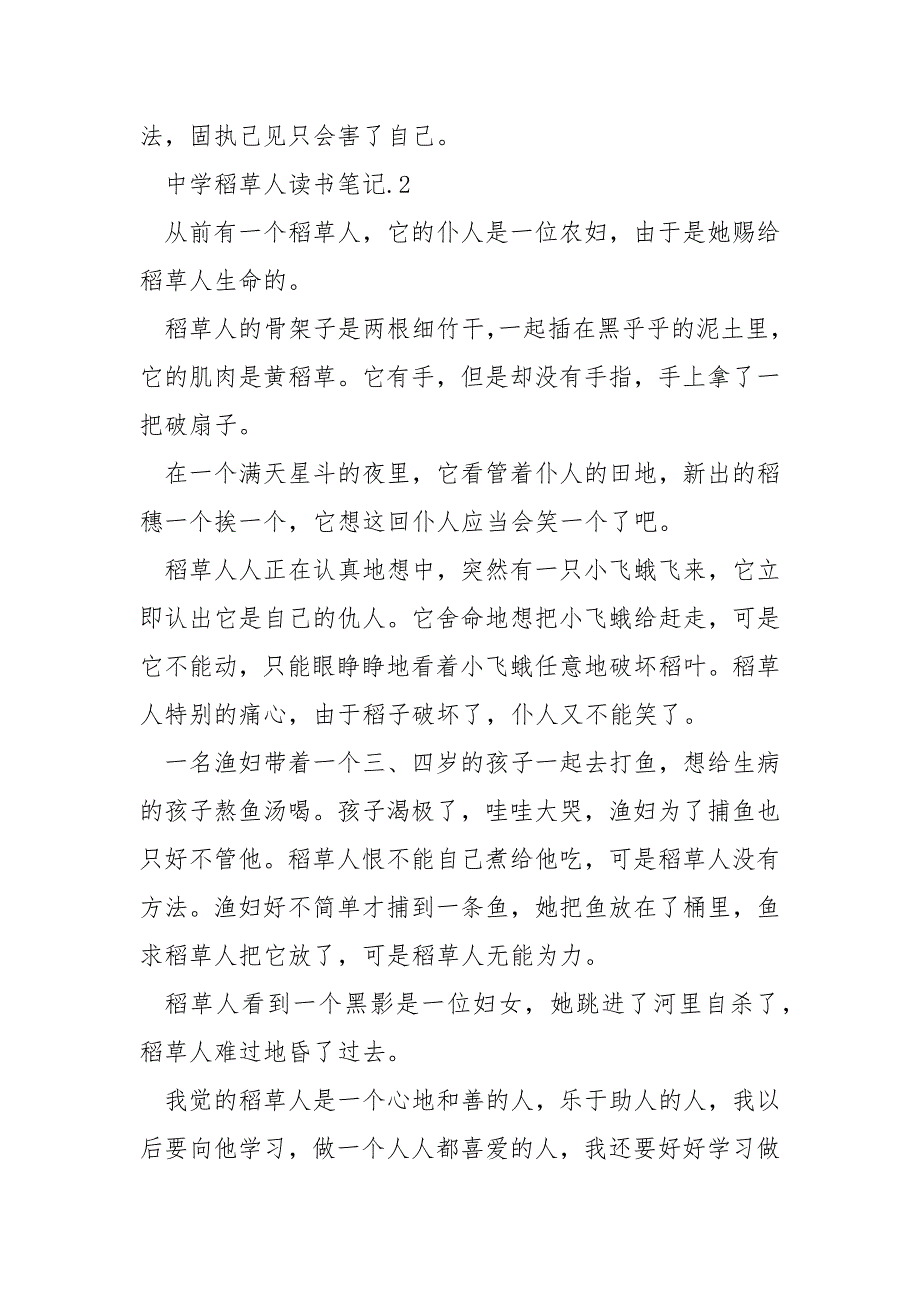 法，固执己见只会害了自己。
中学稻草人读书笔记.2
从前有一个稻草人，它的仆人是一位农妇，由于是她赐给
稻草人生命的。
稻草人的骨架子是两根细竹干，一起插在黑乎乎的泥土里，
它的肌肉是黄稻草。它有手，但是却没有手指，手上拿了一
把破扇子。
在一个满天星斗的夜里，它看管着仆人的田地，新出的稻
穗一个挨一个，它想这回仆人应当会笑一个了吧。
稻草人人正在认真地想中，突然有一只小飞蛾飞来，它立
即认出它是自己的仇人。它舍命地想把小飞蛾给赶走，可是
它不能动，只能眼睁睁地看着小飞蛾任意地破坏稻叶。稻草
人特别的痛心，由于稻子破坏了，仆人又不能笑了。
一名渔妇带着一个三、四岁的孩子一起去打鱼，想给生病
的孩子熬鱼汤喝。孩子渴极了，哇哇大哭，渔妇为了捕鱼也
只好不管他。稻草人恨不能自己煮给他吃，可是稻草人没有
方法。渔妇好不简单才捕到一条鱼，她把鱼放在了桶里，鱼
求稻草人把它放了，可是稻草人无能为力。
稻草人看到一个黑影是一位妇女，她跳进了河里自杀了，
稻草人难过地昏了过去。
我觉的稻草人是一个心地和善的人，乐于助人的人，我以
后要向他学习，做一个人人都喜爱的人，我还要好好学习做